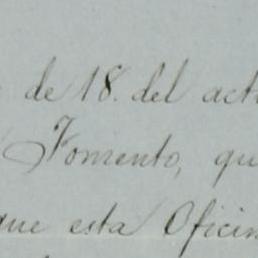 de 18. del act
Fomento, qu
que esta Oficin